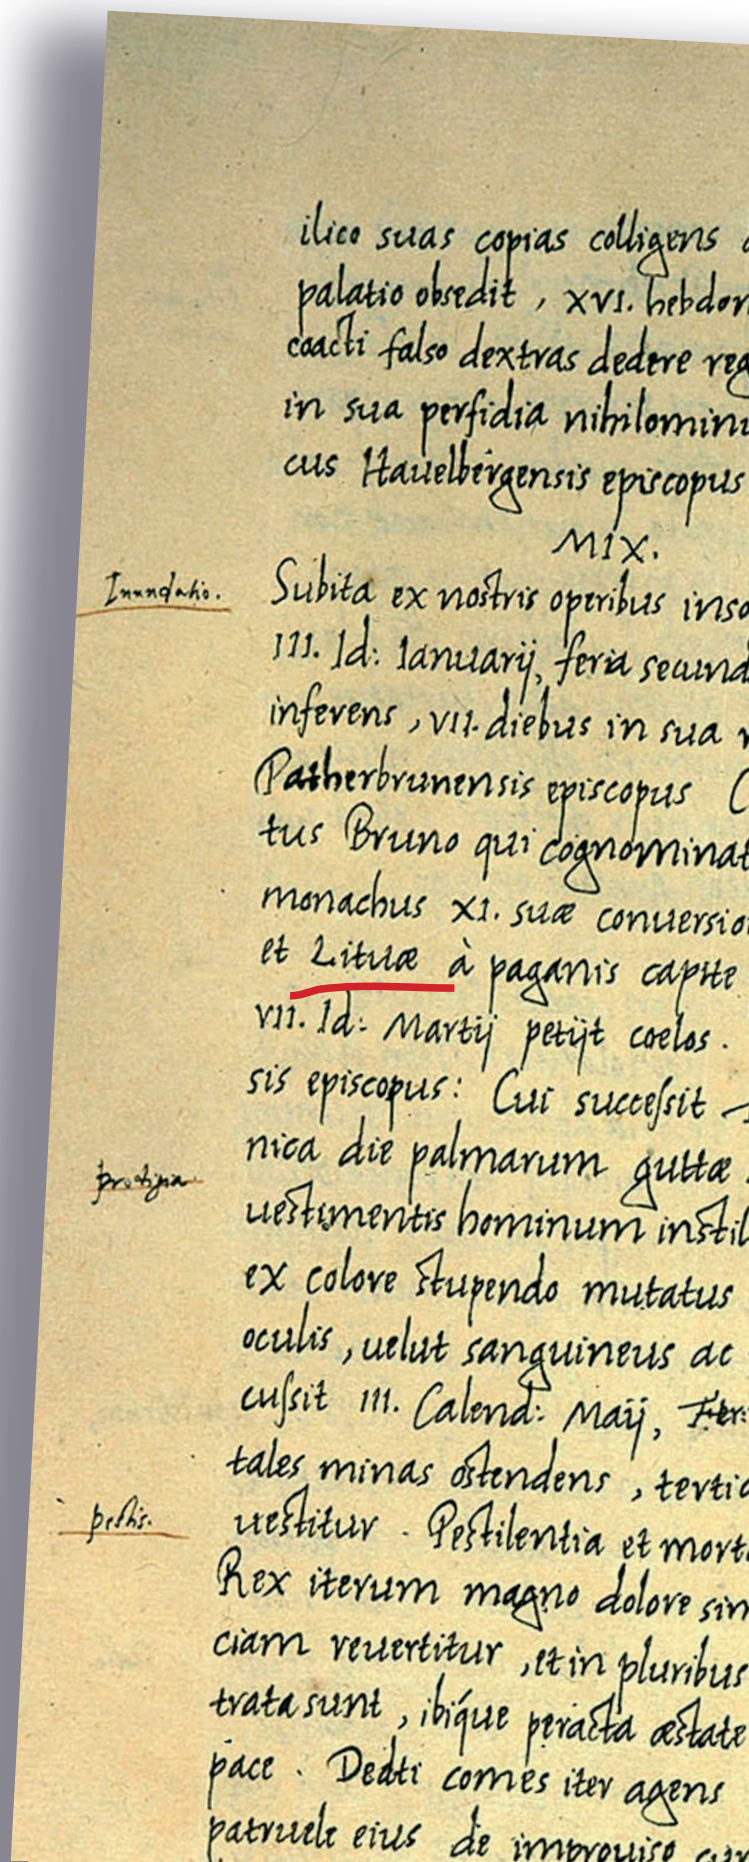 ilico suas copias colligens
palatio obsedit, XVI. hebdom
coacti falso dextras dedere reg
in sua perfidia nihilominu
cus Hauelbergensis episcopus
MIX.
Inundatio.
Subita ex nostris operibus inso
III. Id: Ianuarij, feria secund
inferens, VII. diebus in sua
Patherbrunensis episcopus
tus Bruno qui cognominat
monachus XI. suæ conuersio
et Lituæ à paganis capite
VII. Id: Martij petijt coelos.
sis episcopus: Cui successit
nica die palmarum guttæ
prodigia
uestimentis hominum instil
ex colore stupendo mutatus
oculis, uelut sanguineus ac
cussit III. Calend: Maij, Feri
tales minas ostendens, tertia
pestis.
uestitur. Pestilentia et morta
Rex iterum magno dolore sim
ciam reuertitur, et in pluribus
trata sunt, ibíque peracta æstate
pace. Dedti comes iter agens
patruele eius de improuiso cum